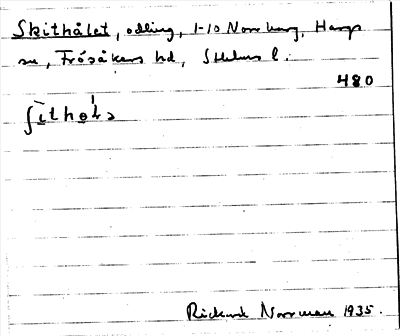 Skithålet, odling, 1-10 Norrharg, Hargs
sn, Frösåkers hd, Sthlms l.
480
ʃi̅tho̩ˈlə
Rickard Norrman 1935.